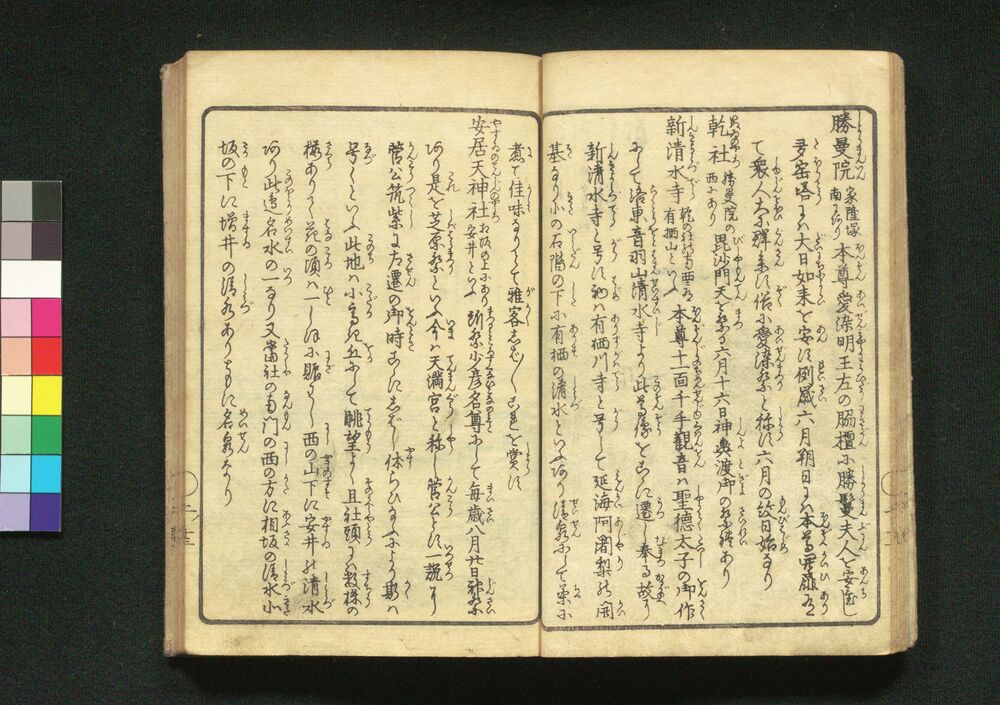 勝曼院 家隆塚南にあり 本尊愛染明王左の脇檀に勝鬘夫人を安置し
多宝塔には大日如来を安ず例歳六月朔日には本尊開扉有
て衆人大に群集す俗に愛染祭と称ず六月の紋日始なり
乾社 勝曼院の西にあり 毘沙門天を祭る六月十六日神輿渡御の祭禮あり
新清水寺 有栖山といふ 本尊十一面千手觀音は聖徳太子の御作
にして洛東音羽山清水寺より此尊像をこゝに遷し奉る故に
新清水寺と号す初は有栖川寺と号して延海阿闍梨の開
基なり小の石階の下に有栖の清水といふあり清泉にして茶に
煮て佳味なりとて雅客しば〳〵これを賞す
安居天神社 お坂の上にあり安井といふ 祭少彦名尊にして毎歳八月廿日祚祭
あり是を芝原祭といふ今は天満宮と称し菅公とす一説に
菅公筑紫に左遷の御時こゝにしばし休らひたまふにより斯は
号くといふ此地は小高き丘にして眺望よく且社頭には数株の
桜ありて花の頃は一しほに賑はし西の山下に安井の清水
あり此辺名水の一なり又當社の南門の西の方に相坂の清水小
坂の下に増井の清水ありともに名泉なり